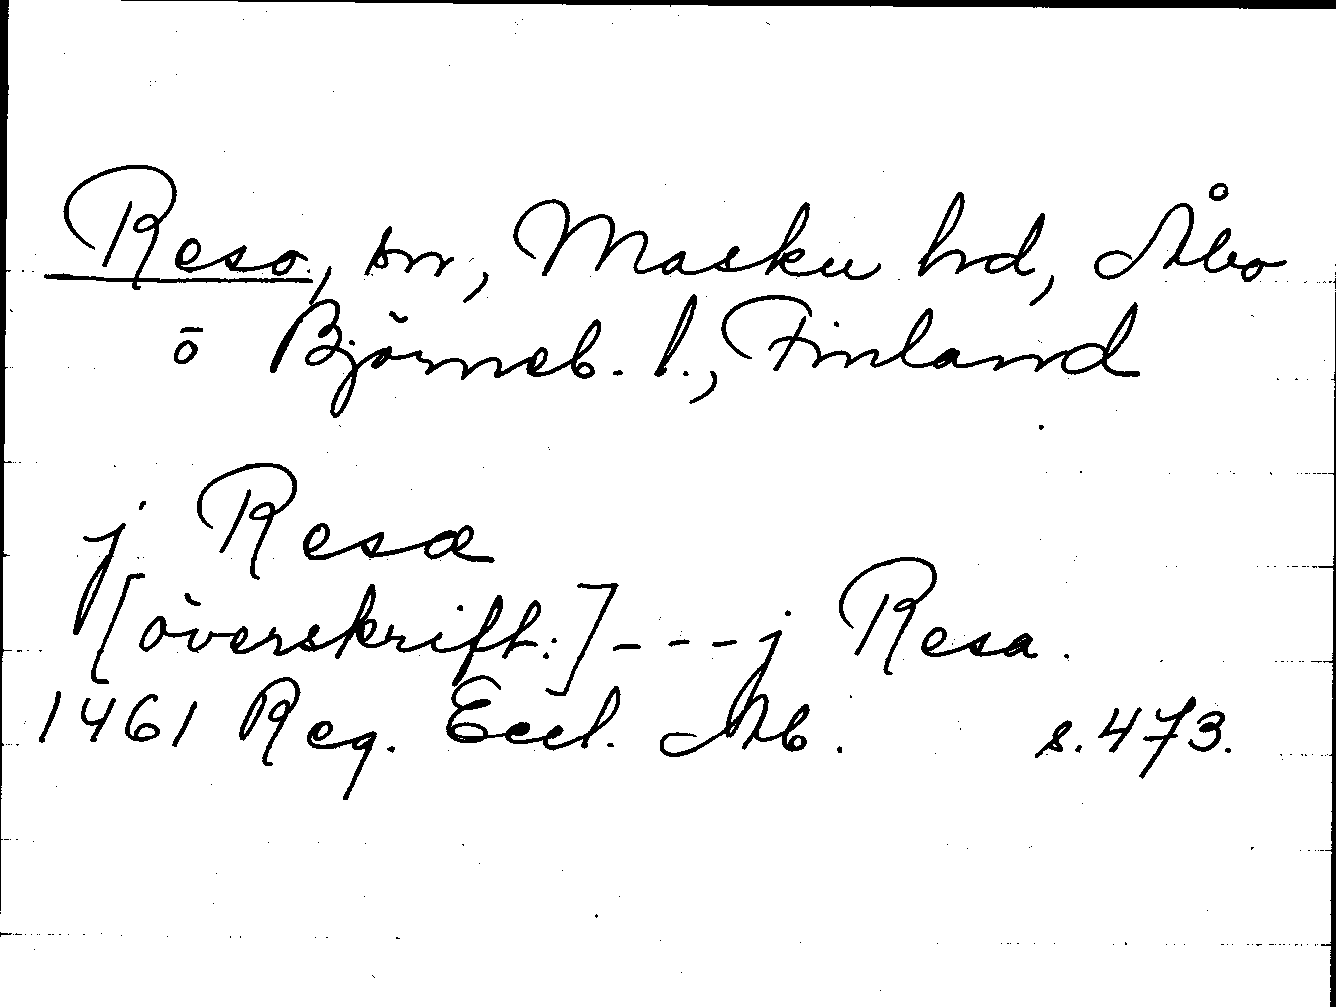 Reso, sn, Masku hd, Åbo
o Björneb. l., Finland
j Resa
[överskrift:] - - - j Resa.
1461 Reg. Eccl. Ab. s. 473.